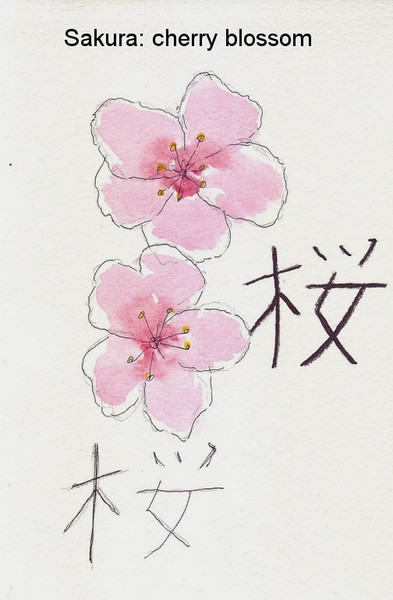 Sakura: cherry blossom
桜
桜